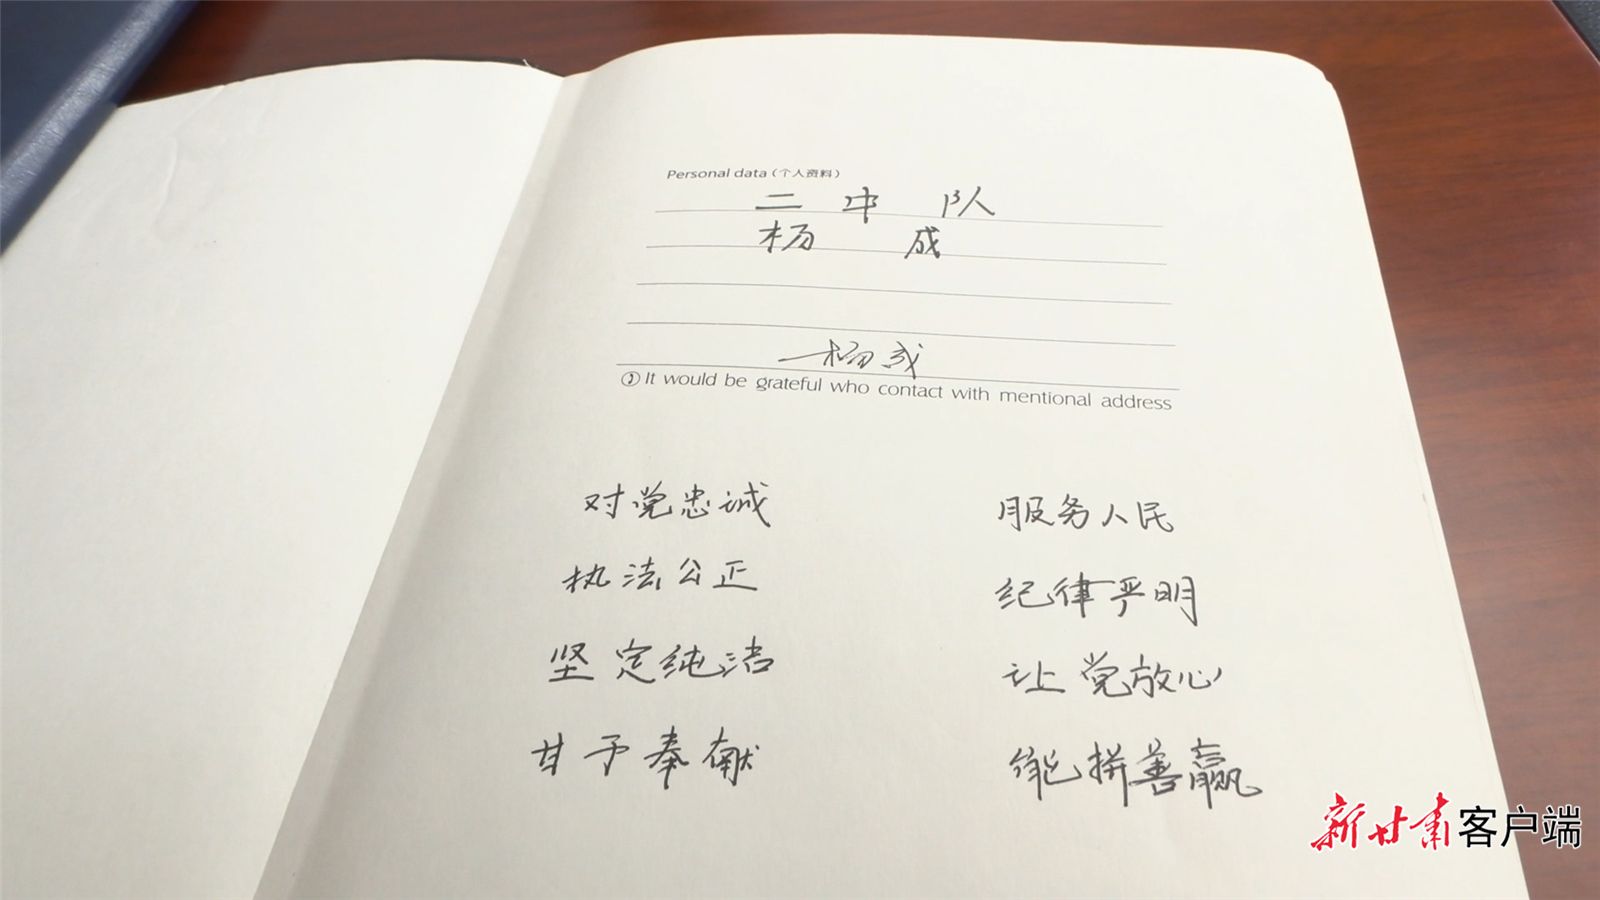 Personal data (个人资料)
二中队
杨成
杨成
② It would be grateful who contact with mentional address
对党忠诚 服务人民
执法公正 纪律严明
坚定纯洁 让党放心
甘于奉献 能拼善赢
新甘肃客户端